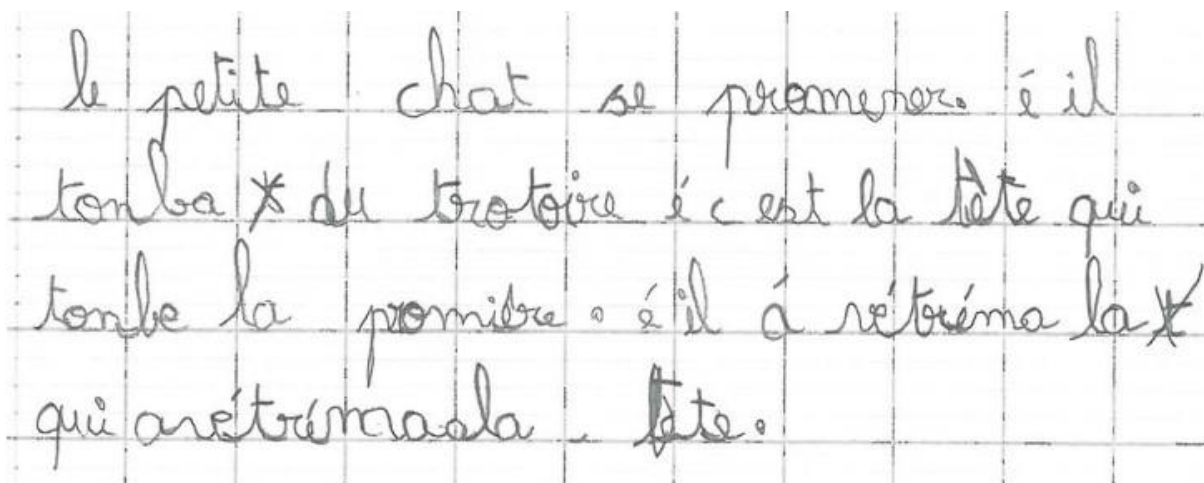 le petite chat se promener. é il
tonba * du trotoire é c est la tète qui
tonbe la promière. é il á rétréma la *
qui arétrémaala - tète.